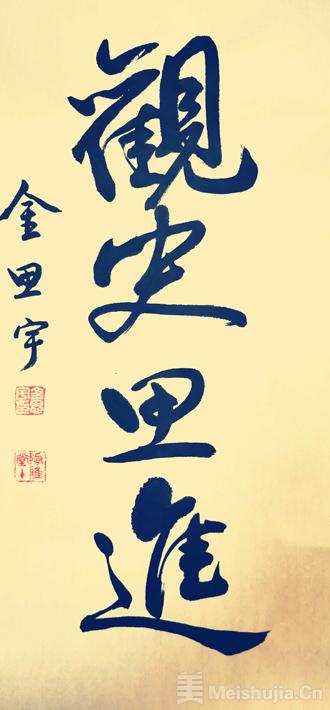 觀史思進
金思宇
美 Meishujia.Cn